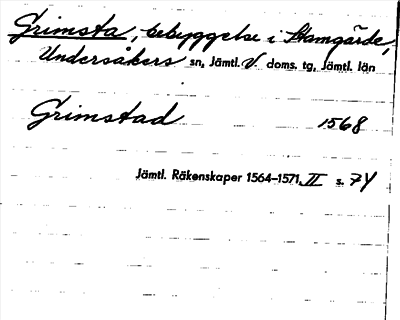 Grimsta, bebyggelse i Hamgärde,
Undersåkers sn, Jämtl. V. doms. tg, Jämtl. län
Grimstad 1568
Jämtl. Räkenskaper 1564–1571, II s. 74